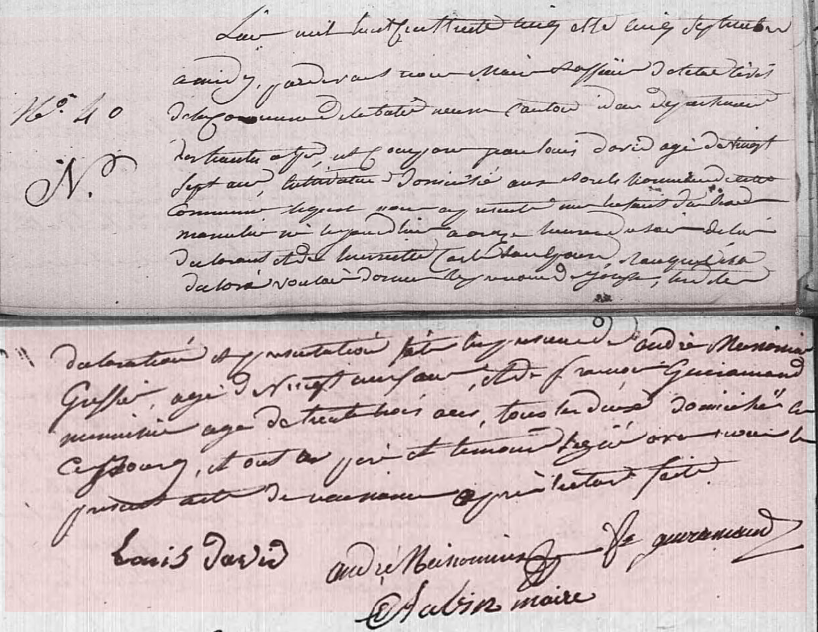 L'an mil huit cent trente cinq et le cinq septembre
a midy, pardevant nous Maire & officier d'etat civil
No. 40
de la Commune de la batie neuve canton id. departement
des hautes alpes, est comparu Louis david agé de vingt
N.
sept ans, cultivateur domicilié aux borels hameau de cette
Commune lequel nous a presenté un enfant du sexe
masculin né aujourd'hui a onze heures du soir de lui
declarant et de henriette auquel il a
declaré vouloir donner les prenoms de joseph, les dites
declaration et presentation faites en presence de andré Meissonnier
Greffier, agé de vingt ans, et de françois Gueramand
menuisier agé de trente trois ans, tous les deux domiciliés a
ce bourg, et ont les pere et temoins signé avec nous le
present acte de naissance apres lecture faite.
Louis david
andré Meissonnier
fs gueramand
maire